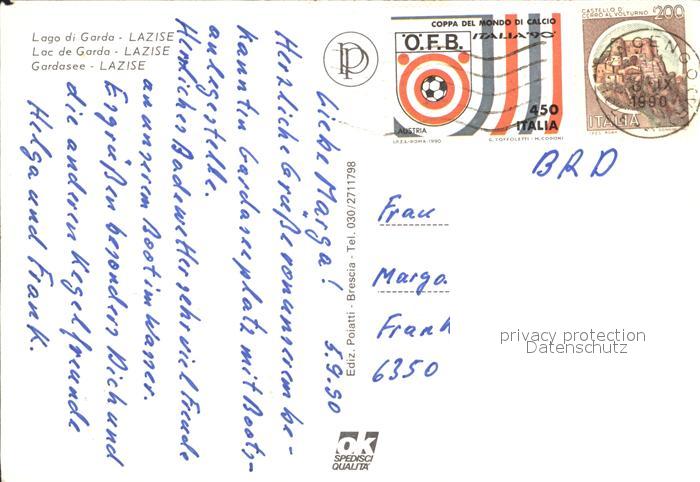 Lago di Garda - LAZISE
Lac de Garda - LAZISE
Gardasee - LAZISE
COPPA DEL MONDO DI CALCIO
ITALIA '90
Ö.F.B.
AUSTRIA
450
ITALIA
I.P.Z.S.-ROMA-1990
C. TOFFOLETTI - M. CODONI
CASTELLO DI
CERRO AL VOLTURNO
£200
IX
1990
ITALIA
Ediz. Poiatti - Brescia - Tel. 030/2711798
5.9.90
Liebe Marga!
Herzliche Grüße von unserem be-
kannten Gardaseeplatz mit Boots-
anlegestelle.
Herrliches Badewetter sehr viel Freude
an unserem Boot im Wasser.
Es grüßen besonders Dich und
die anderen Kegelfreunde
Helga und Frank.
BRD
Frau
Marga
Frank
6350
privacy protection
Datenschutz
ok
SPEDISCI
QUALITÀ